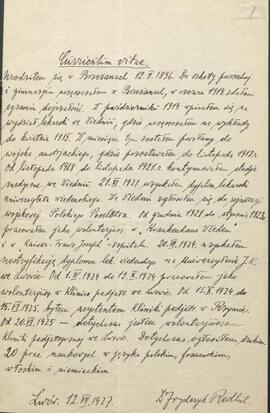 Curriculum vitae.
Urodziłem się w Brzeżanach 12.X.1896. Do szkoły
i gimnazjum uczęszczałem w Brzeżanach, w czerwcu 1914 zdałem
egzamin dojrzałości. W październiku 1914 wpisałem się na
wydział lekarski we Wiedniu, gdzie uczęszczałem na wykłady
do kwietnia 1915. W miesiącu tym zostałem powołany do
wojska austrjackiego, gdzie pozostawałem do listopada 1918 r.
Od listopada 1918 do listopada 1921 r. kontynuowałem studja
medyczne we Wiedniu 21.XI.1921 uzyskałem dyplom lekarski
uniwersytetu wiedeńskiego. We Wiedniu zgłosiłem się do rejestracji
wojskowej Polskiego Poselstwa. Od grudnia 1921 do stycznia 1923
pracowałem jako wolontarjusz w Krankenhaus Wieden
i w Kaiser-Franz Joseph-Spital. 20.III.1924 uzyskałem
nostryfikację dyplomu lek. wiedeńskiego na Uniwersytecie J.K.
we Lwowie. Od 1.IV.1924 do 12.X.1924 pracowałem jako
wolontarjusz w Klinice pedjatr. we Lwowie. Od 15.X.1924 do
15.VI.1925 byłem asystentem Kliniki pedjatr. w Rzymie.
Od 20.VI.1925 — dotychczas jestem wolontarjuszem
Kliniki pedjatrycznej we Lwowie. Dotychczas ogłosiłem drukiem
20 prac naukowych w języku polskim, francuskim,
włoskim i niemieckim.
Lwów. 12.VII.1927. Dr Fryderyk Redlich